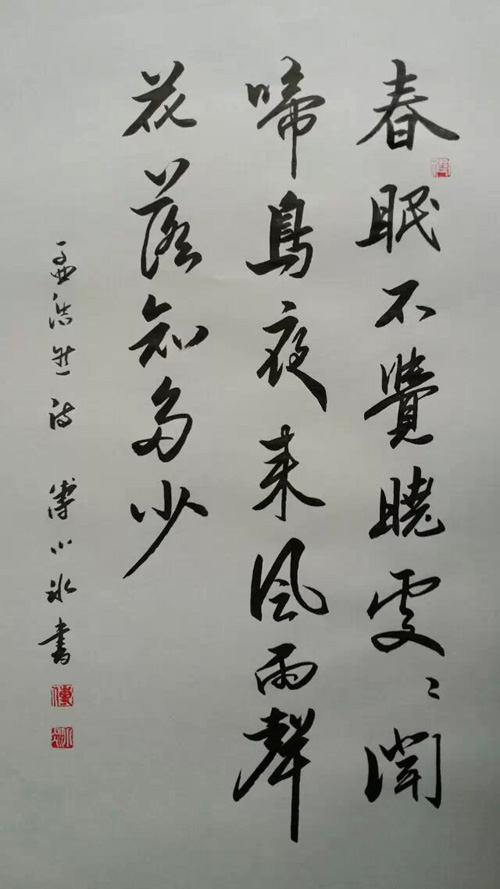 春眠不覺曉處々聞
啼鳥夜来風雨聲
花落知多少
孟浩然詩 傅小冰書